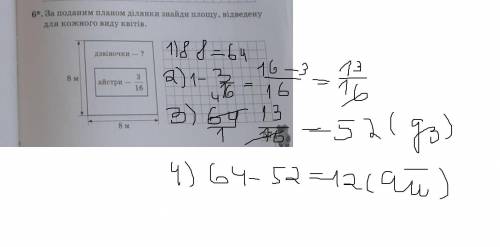 6*. За поданим планом ділянки знайди площу, відведену
для кожного виду квітів.
дзвіночки – ?
айстри – 3/16
8 м
8 м
1) 8 8 = 64
2) 1 - 3/16 = 16 - 3/16 = 13/16
3) 64/1 13/16 = 52 (дз)
4) 64 - 52 = 12 (